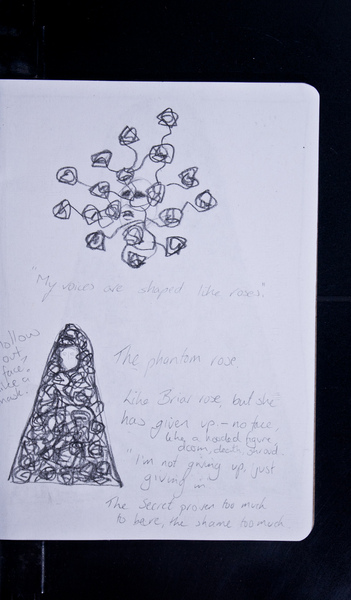 "My voices are shaped like roses."
hollow
out,
face.
like a
mask.
The phantom rose.
Like Briar rose, but she
has given up – no face,
like a hooded figure,
doom, death, shroud.
"I'm not giving up, just
giving in
The Secret proven too much
to bare, the shame too much